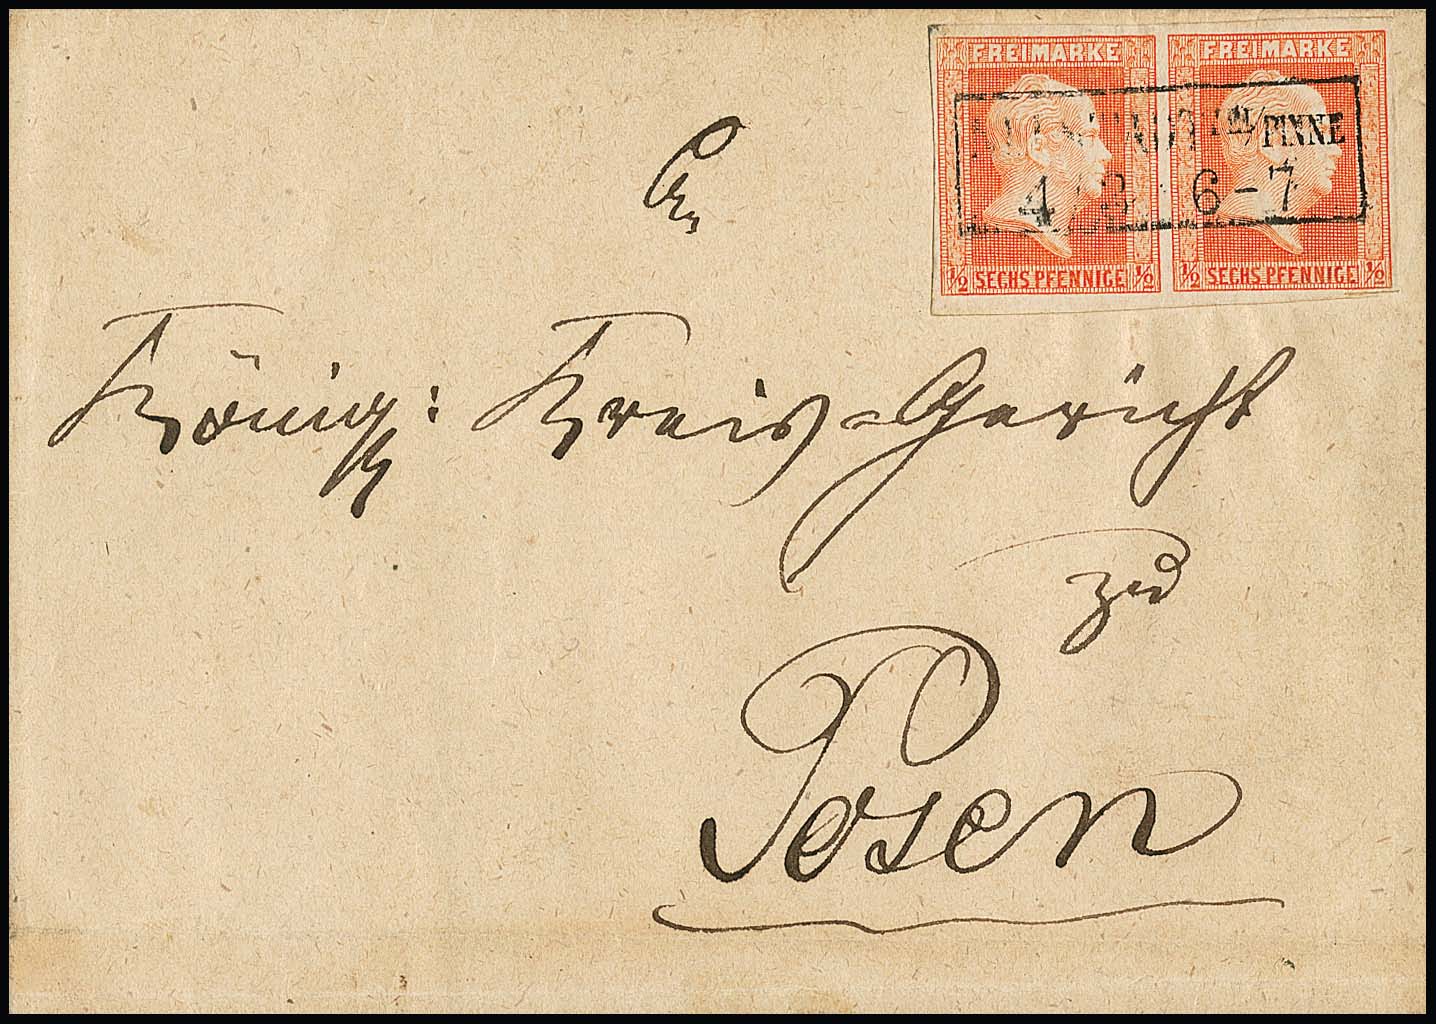 FREIMARKE FREIMARKE
PINNE
4 8 6-7
½ SECHS PFENNIGE ½ ½ SECHS PFENNIGE ½
An
Königl: Kreis-Gericht
zu
Posen